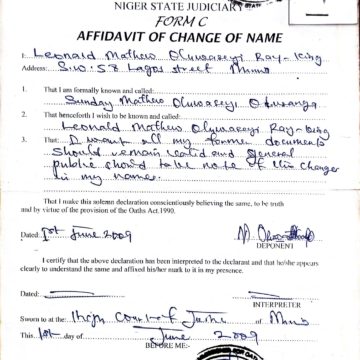 NIGER STATE JUDICIARY
FORM C
AFFIDAVIT OF CHANGE OF NAME
I: Leonald Mathew Oluwaseyi Ray-King
Address: S.W. 58 Lagos street Minna
1. That I am formally known and called:
Sunday Mathew Oluwaseyi
2. That henceforth I wish to be known and called:
Leonald Mathew Oluwaseyi Ray-King
3. That: I want all my former documents
should remain valid and general
public should to be note of this changes
in my name.
That I make this solemn declaration consciously believing the same, to be truth
and by virtue of the provision of the Oaths Act.1990.
Dated: 1st June 2009
DEPONENT
I certify that the above declaration has been interpreted to the declarant and that he/she appears
clearly to understand the same and affixed his/her mark to it in my presence.
Dated:
INTERPRETER
Sworn to at the: High Court of Justice of Minna
This 1st day of June 2009
BEFORE ME:-